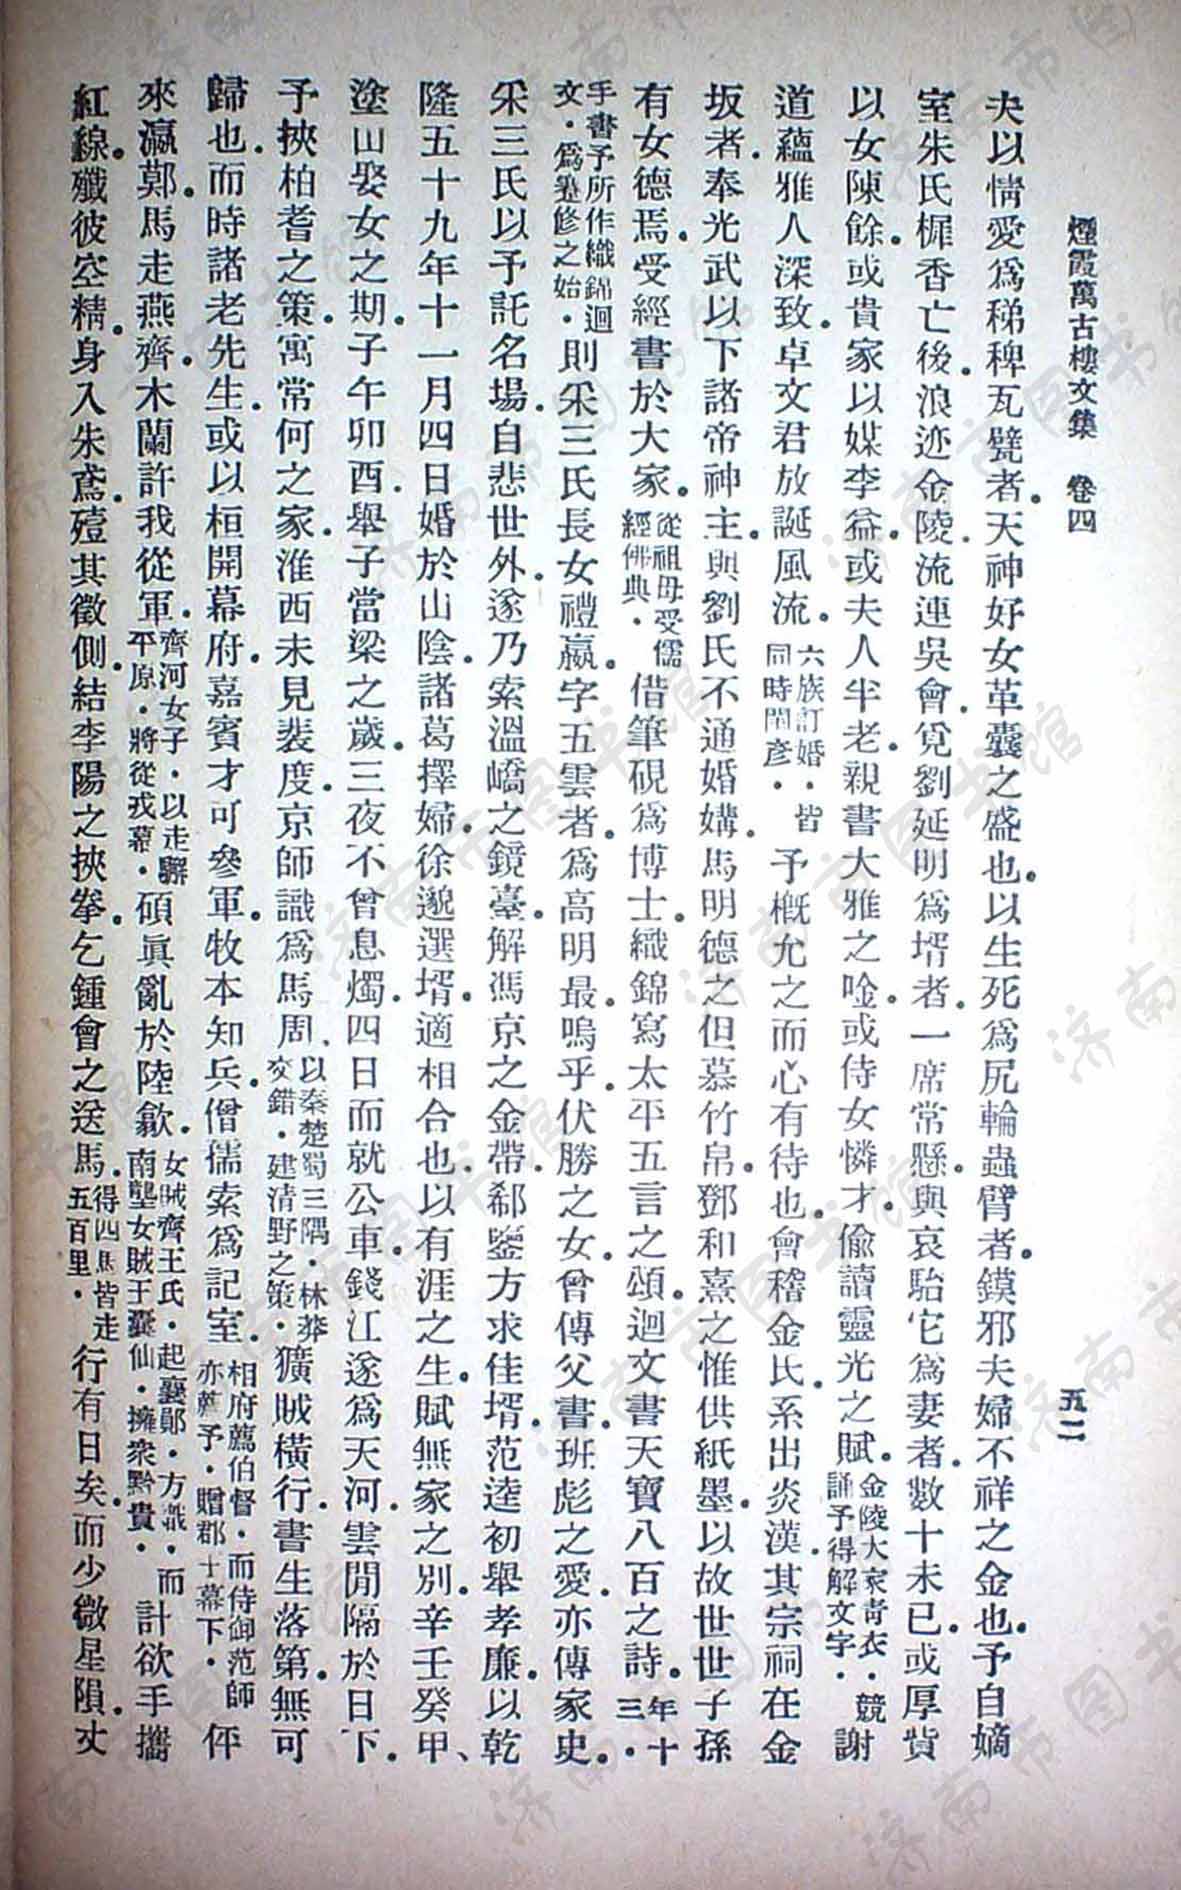 煙霞萬古樓文集　卷四　五二
夫以情愛爲稊稗瓦甓者。天神好女革囊之盛也。以生死爲尻輪蟲臂者。鏌邪夫婦不祥之金也。予自嫡
室朱氏樨香亡後。浪迹金陵。流連吳會。覓劉延明爲壻者。一席常懸。與哀駘它爲妻者。數十未已。或厚貲
以女陳餘。或貴家以媒李益。或夫人半老。親書大雅之唫。或侍女憐才。偷讀靈光之賦。金陵大家靑衣．競誦予得解文字．謝
道蘊雅人深致。卓文君放誕風流。六族訂婚．皆同時閨彥．予槪允之而心有待也。會稽金氏。系出炎漢。其宗祠在金
坂者。奉光武以下諸帝神主。與劉氏不通婚媾。馬明德之但慕竹帛。鄧和熹之惟供紙墨。以故世世子孫
有女德焉。受經書於大家。從祖母受儒經佛典．借筆硯爲博士。織錦寫太平五言之頌。迴文書天寶八百之詩。年十三．
手書予所作織錦迴文．爲蹇修之始．則采三氏長女禮嬴。字五雲者。爲高明最。嗚乎。伏勝之女。曾傳父書。班彪之愛。亦傳家史。
采三氏以予託名場。自悲世外。遂乃索溫嶠之鏡臺。解馮京之金帶。郗鑒方求佳壻。范逵初舉孝廉。以乾
隆五十九年十一月四日婚於山陰。諸葛擇婦。徐邈選壻。適相合也。以有涯之生。賦無家之別。辛壬癸甲、
塗山娶女之期。子午卯酉。舉子當梁之歲。三夜不曾息燭。四日而就公車。錢江遂爲天河。雲閒隔於日下。
予挾柏耆之策。寓常何之家。淮西未見裴度。京師識爲馬周。以秦楚蜀三隅．林莽交錯．建清野之策．獷賊橫行。書生落第。無可
歸也。而時諸老先生。或以桓開幕府。嘉賓才可參軍。牧本知兵。僧孺索爲記室。相府薦伯督．而侍御范師亦薦予．贈郡十幕下．伻
來瀛鄚。馬走燕齊。木蘭許我從軍。齊河女子．以走驎平原．將從戎幕．碩眞亂於陸歙。女賊齊王氏．起襄鄖．方戢．而南籠女賊王囊仙．擁衆黔貴．計欲手攜
紅線。殲彼空精。身入朱鳶。殪其徵側。結李陽之挾拳。乞鍾會之送馬。得四馬皆走五百里．行有日矣。而少微星隕。丈